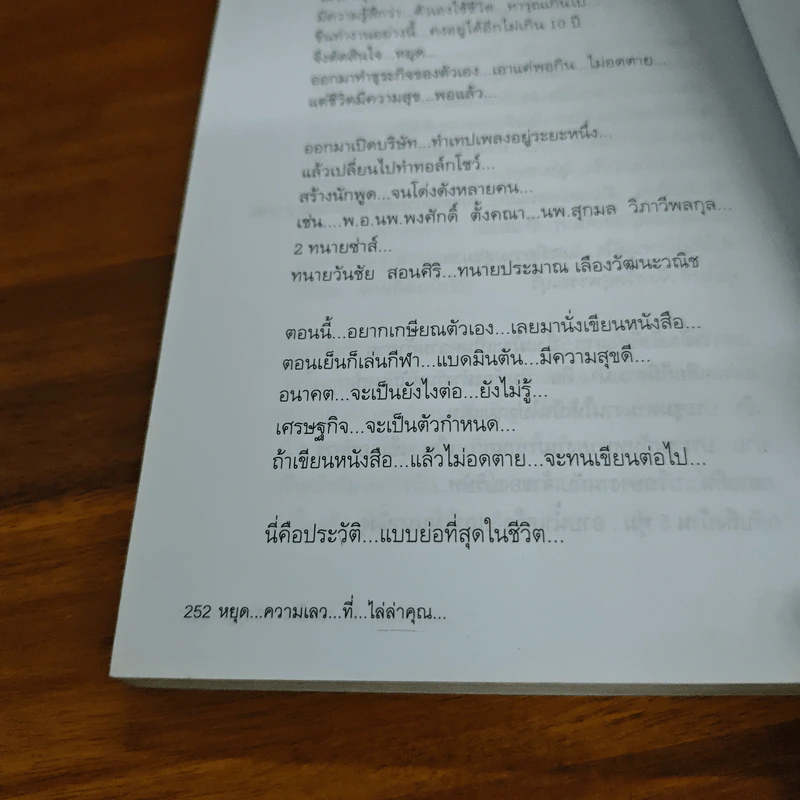 มีความรู้สึกว่า ตัวเองใช้ชีวิต ทารุณเกินไป...
ขืนทำงานอย่างนี้...คงอยู่ได้อีกไม่เกิน 10 ปี
จึงตัดสินใจ...หยุด...
ออกมาทำธุระกิจของตัวเอง...เอาแค่พอกิน...ไม่อดตาย...
แต่ชีวิตมีความสุข...พอแล้ว...
ออกมาเปิดบริษัท...ทำเทปเพลงอยู่ระยะหนึ่ง...
แล้วเปลี่ยนไปทำทอล์กโชว์...
สร้างนักพูด...จนโด่งดังหลายคน...
เช่น....พ.อ.นพ.พงศักดิ์ ตั้งคณา...นพ.สุกมล วิภาวีพลกุล...
2 ทนายซ่าส์...
ทนายวันชัย สอนศิริ...ทนายประมาณ เลืองวัฒนะวณิช
ตอนนี้...อยากเกษียณตัวเอง...เลยมานั่งเขียนหนังสือ...
ตอนเย็นก็เล่นกีฬา...แบดมินตัน...มีความสุขดี...
อนาคต...จะเป็นยังไงต่อ...ยังไม่รู้...
เศรษฐกิจ...จะเป็นตัวกำหนด...
ถ้าเขียนหนังสือ...แล้วไม่อดตาย...จะทนเขียนต่อไป...
นี่คือประวัติ...แบบย่อที่สุดในชีวิต...
252 หยุด...ความเลว...ที่...ไล่ล่าคุณ...